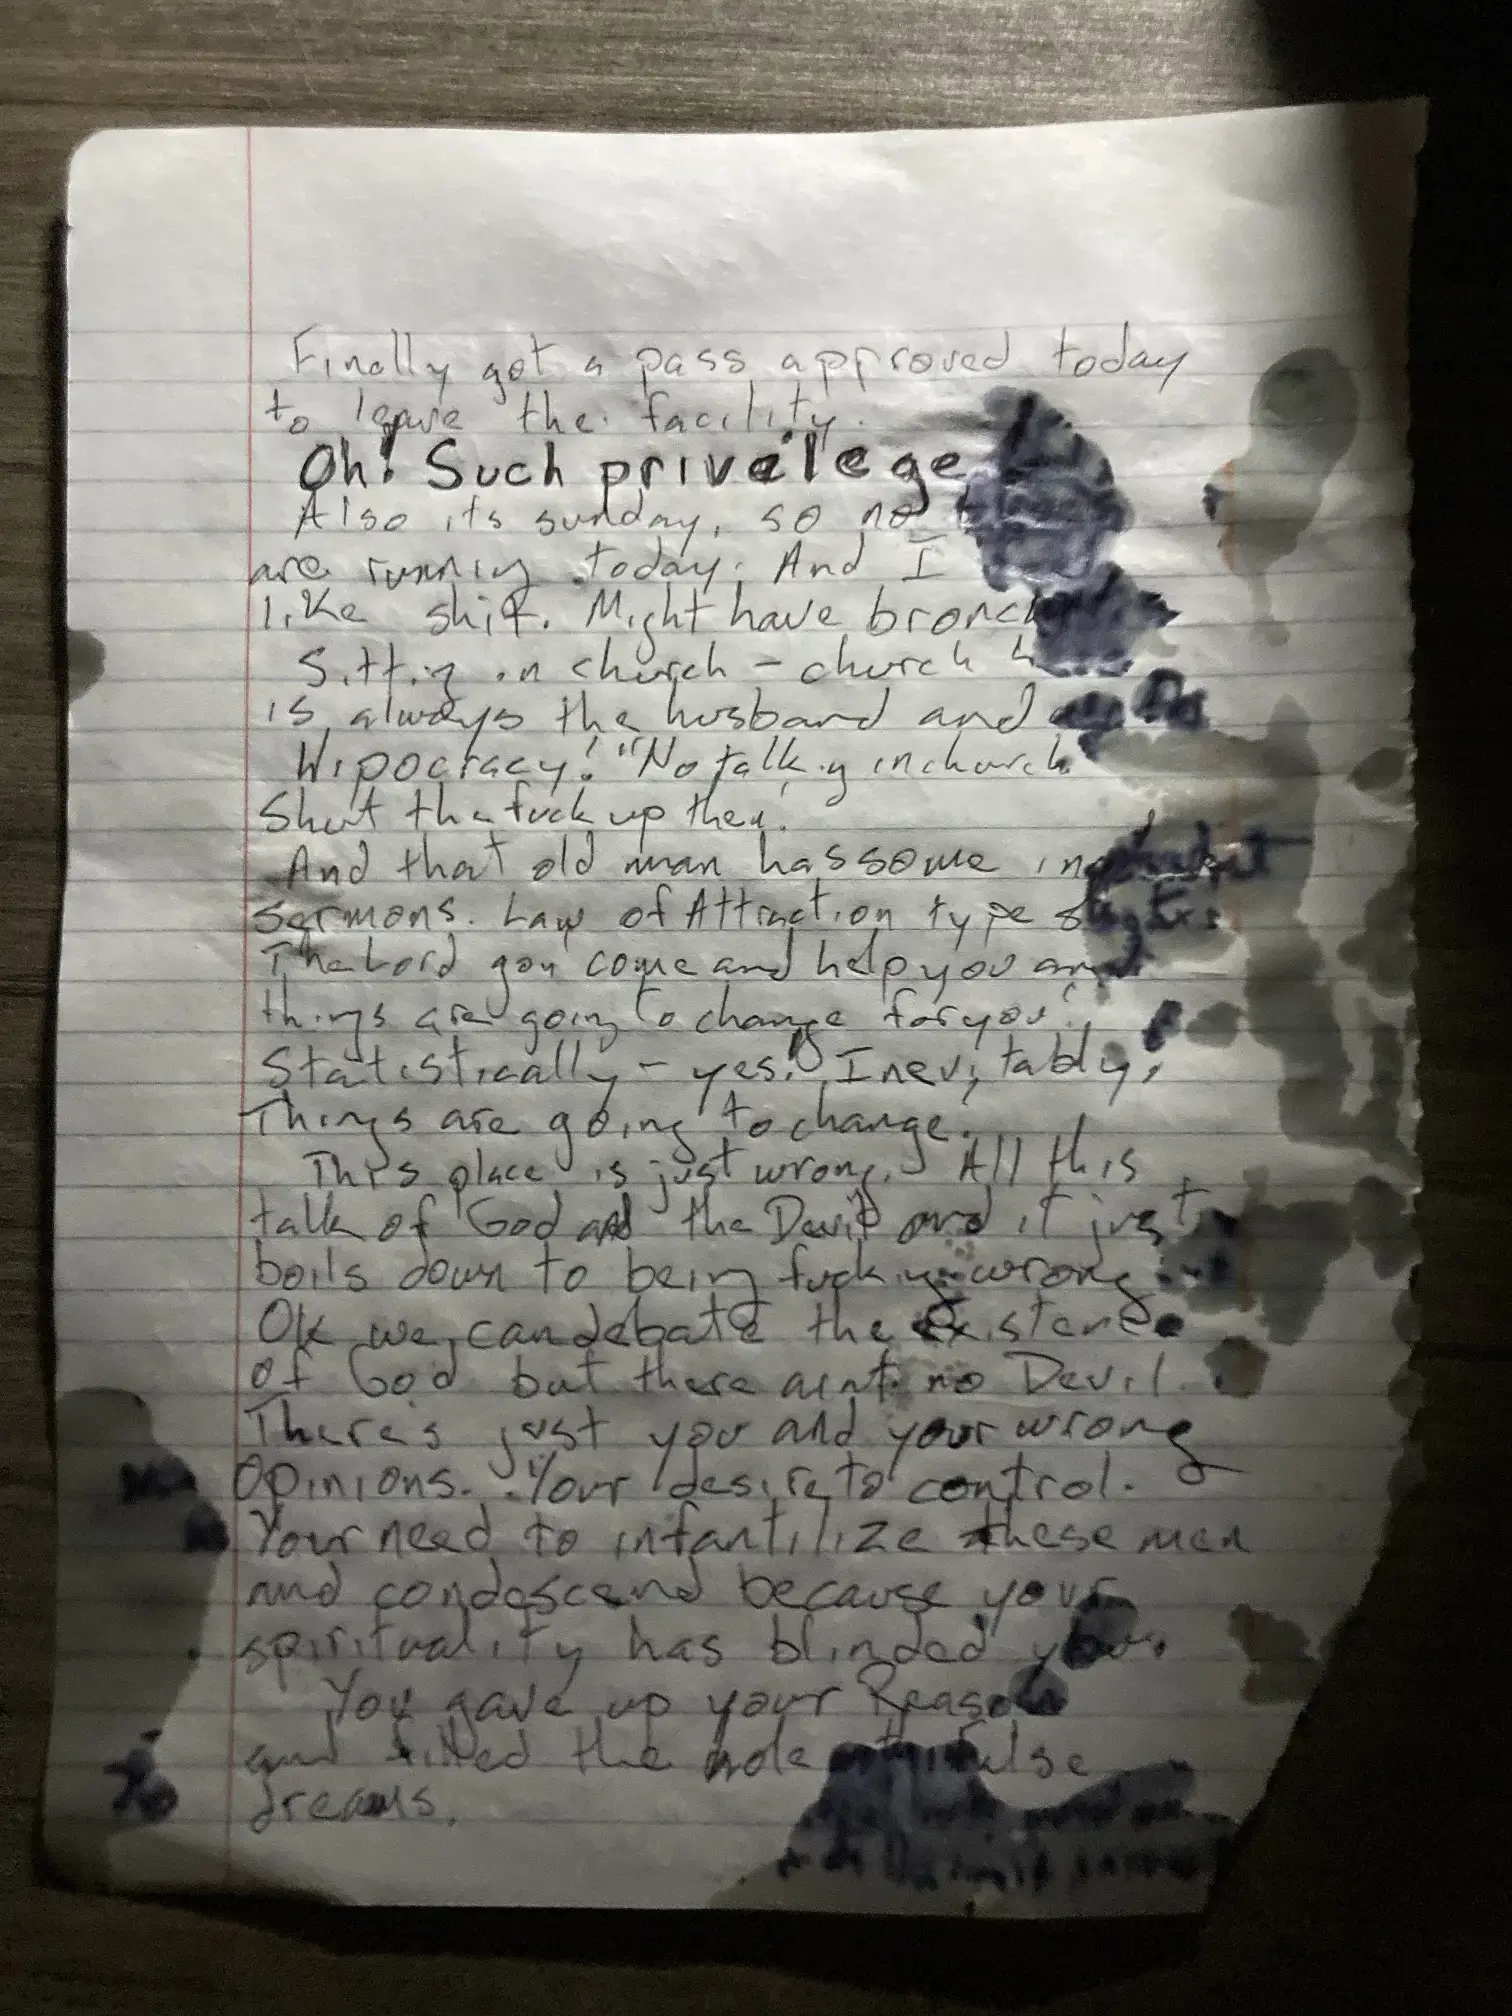 Finally got a pass approved today
to leave the facility.
Oh! Such privelege
Also its sunday, so no
are running today. And I
like shit. Might have bronch
Sitting in church - church
is always the husband and
Hipocracy! "No talking in church
Shut the fuck up then.
And that old man has some
sermons. Law of Attraction type
The Lord gon' come and help you and
things are going to change for you!
Statistically - yes! Inevitably,
Things are going to change.
This place is just wrong. All this
talk of God and the Devil and it just
boils down to being fucking wrong
Ok we can debate the existence
of God but there aint no Devil.
There's just you and your wrong
opinions. Your desire to control.
Your need to infantilize these men
and condescend because your
spirituality has blinded you.
You gave up your Reason
and filled the hole with false
dreams.